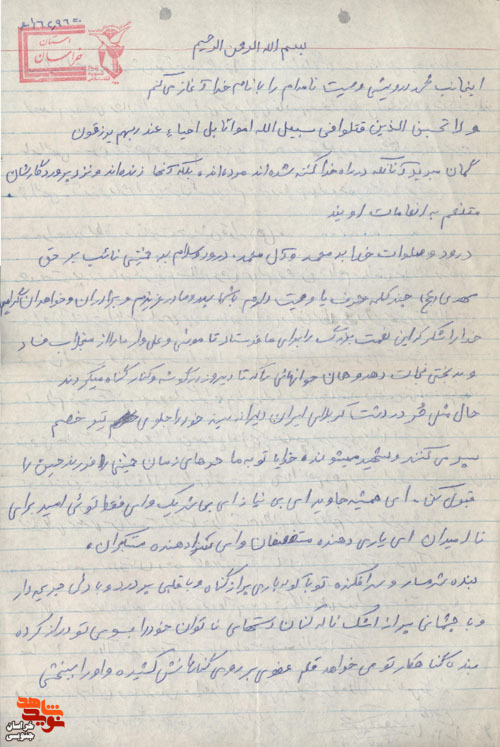 ۱۶۲۹۶۵۰
استان
خراسان
بسم الله الرحمن الرحیم
اینجانب محمد درویشی وصیت نامه‌ام را با نام خدا آغاز می‌کنم
ولا تحسبن الذین قتلوا فی سبیل الله امواتا بل احیاء عند ربهم یرزقون
گمان مبرید آنانکه در راه خدا کشته شده‌اند مرده‌اند، بلکه آنها زنده‌اند و نزد پروردگارشان
متنعم به انعامات اویند
درود و صلوات خدا بر محمد و آل محمد. درود و سلام بر خمینی نائب بر حق
مهدی (عج) چند کلمه حرف یا وصیت دارم با شما پدر و مادر عزیزم و برادران و خواهران گرامیم
خدا را شکر که این نعمت بزرگ را برای ما فرستاد تا موسی وعلی وار ما را از منجلاب فساد
و بدبختی نجات دهد و همان جوانهائی که تا دیروز در گوشه و کنار گناه میکردند
حال مثل حر در دشت کربلای ایران دلیرانه سینه خود را جلوی تیر خصم
سپر می کنند و شهید میشوند خدایا توبه ما حرهای زمان خمینی را فرزند حسین را
قبول کن. ای همیشه جاوید ای بی نیاز ای بی شریک وای فقط توئی امید برای
نا امیدان ای یاری دهنده مستضعفان و ای دهنده متکبران.
بنده شرمسار و سرافکنده تو با کوله باری پر از گناه و با قلبی پر درد و با دلی جریحه دار
و با چشمانی پر از اشک ناله کنان دستهای ناتوان خود را بسوی تو دراز کرده
بنده گناهکار تو می خواهد قلم عفوی بر روی گناهانش کشیده و او را ببخشی
شاهد
نوید
خراسان
جنوبی